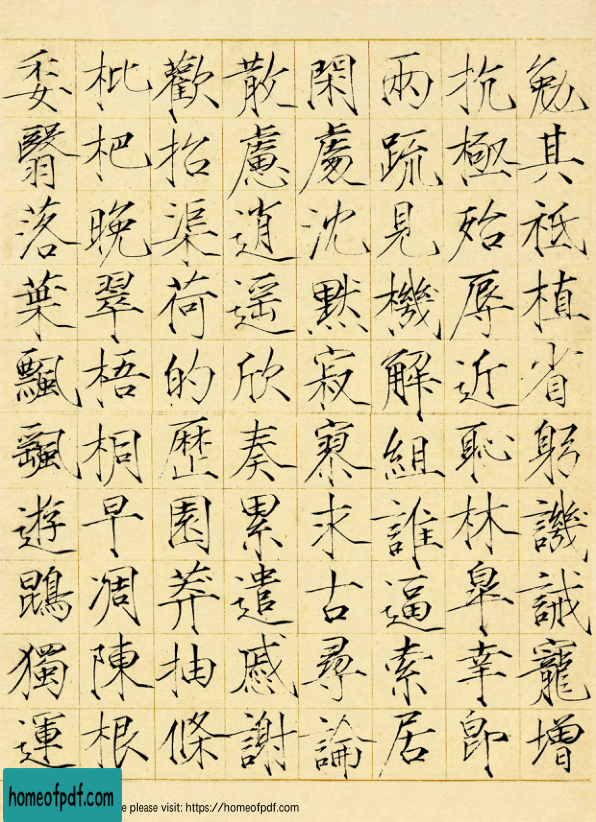 勉其祗植省躬譏誡寵增
抗極殆辱近恥林皐幸即
兩疏見機解組誰逼索居
閑處沈默寂寥求古尋論
散慮逍遥欣奏累遣慼謝
歡招渠荷的歷園莽抽條
枇杷晚翠梧桐早凋陳根
委翳落葉飄飖遊鵾獨運
homeofpdf.com
e please visit: https://homeofpdf.com